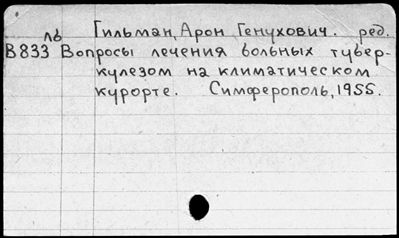 ль Гильман, Арон Генухович. ред.
В833 Вопросы лечения больных тубер-
кулезом на климатическом
курорте. Симферополь, 1955.